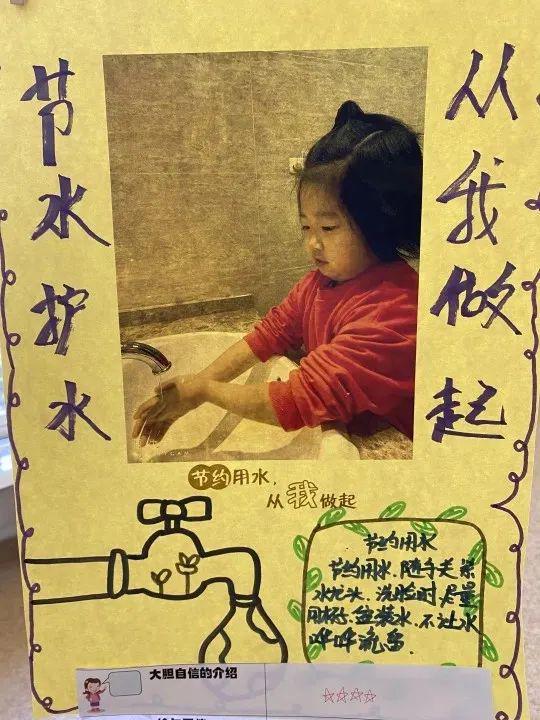 节水护水
从我做起
节约用水，
从我做起
节约用水
节约用水.随手关紧
水龙头.洗脸时尽量
用杯.盆装水.不让水
哗哗流.
大胆自信的介绍
☆☆☆☆